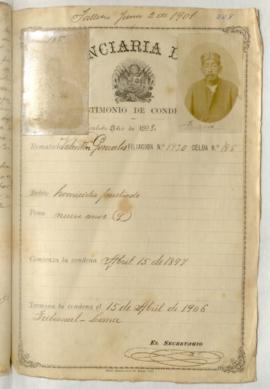 Falleció Junio 2 de 1901
NCIARIA
TESTIMONIO DE CONDE
de 1892.
Rematado Valentín Gonzales FILIACION N.º 1720 CELDA N.º 185
Delito homicidio frustrado
Pena nueve años (9)
Comienza la condena Abril 15 de 1897
Termina la condena el 15 de Abril de 1906
Tribunal - Lima
EL SECRETARIO